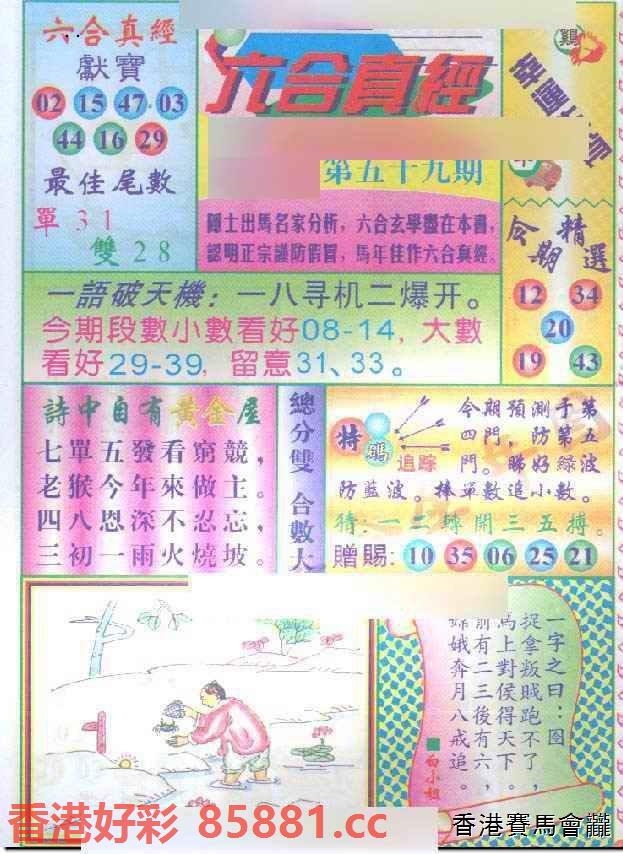 六合真經
獻寶
02 15 47 03
44 16 29
最佳尾數
單 31
雙 28
六合真經
第五十九期
隱士出馬名家分析，六合玄學盡在本書，
認明正宗謹防假冒，馬年佳作六合真經。
今期精選
12 34
20
19 43
一語破天機：一八寻机二爆开。
今期段數小數看好08-14，大數
看好29-39，留意31、33。
詩中自有黃金屋
七單五發看窮競，
老猴今年來做主。
四八恩深不忍忘，
三初一雨火燒坡。
總分雙 合數大
特碼
追踪
今期預測于第
四門，防第五
門。睇好綠波
防藍波。捧單數追小數。
猜：一二球開三五搏。
贈賜：10 35 06 25 21
一字之曰：图
捉拿叛賊跑不了，
馬上對侯得天下。
前有二三後有六，
娥奔月八戒追。
■白小姐
香港好彩 85881.cc
香港賽馬會